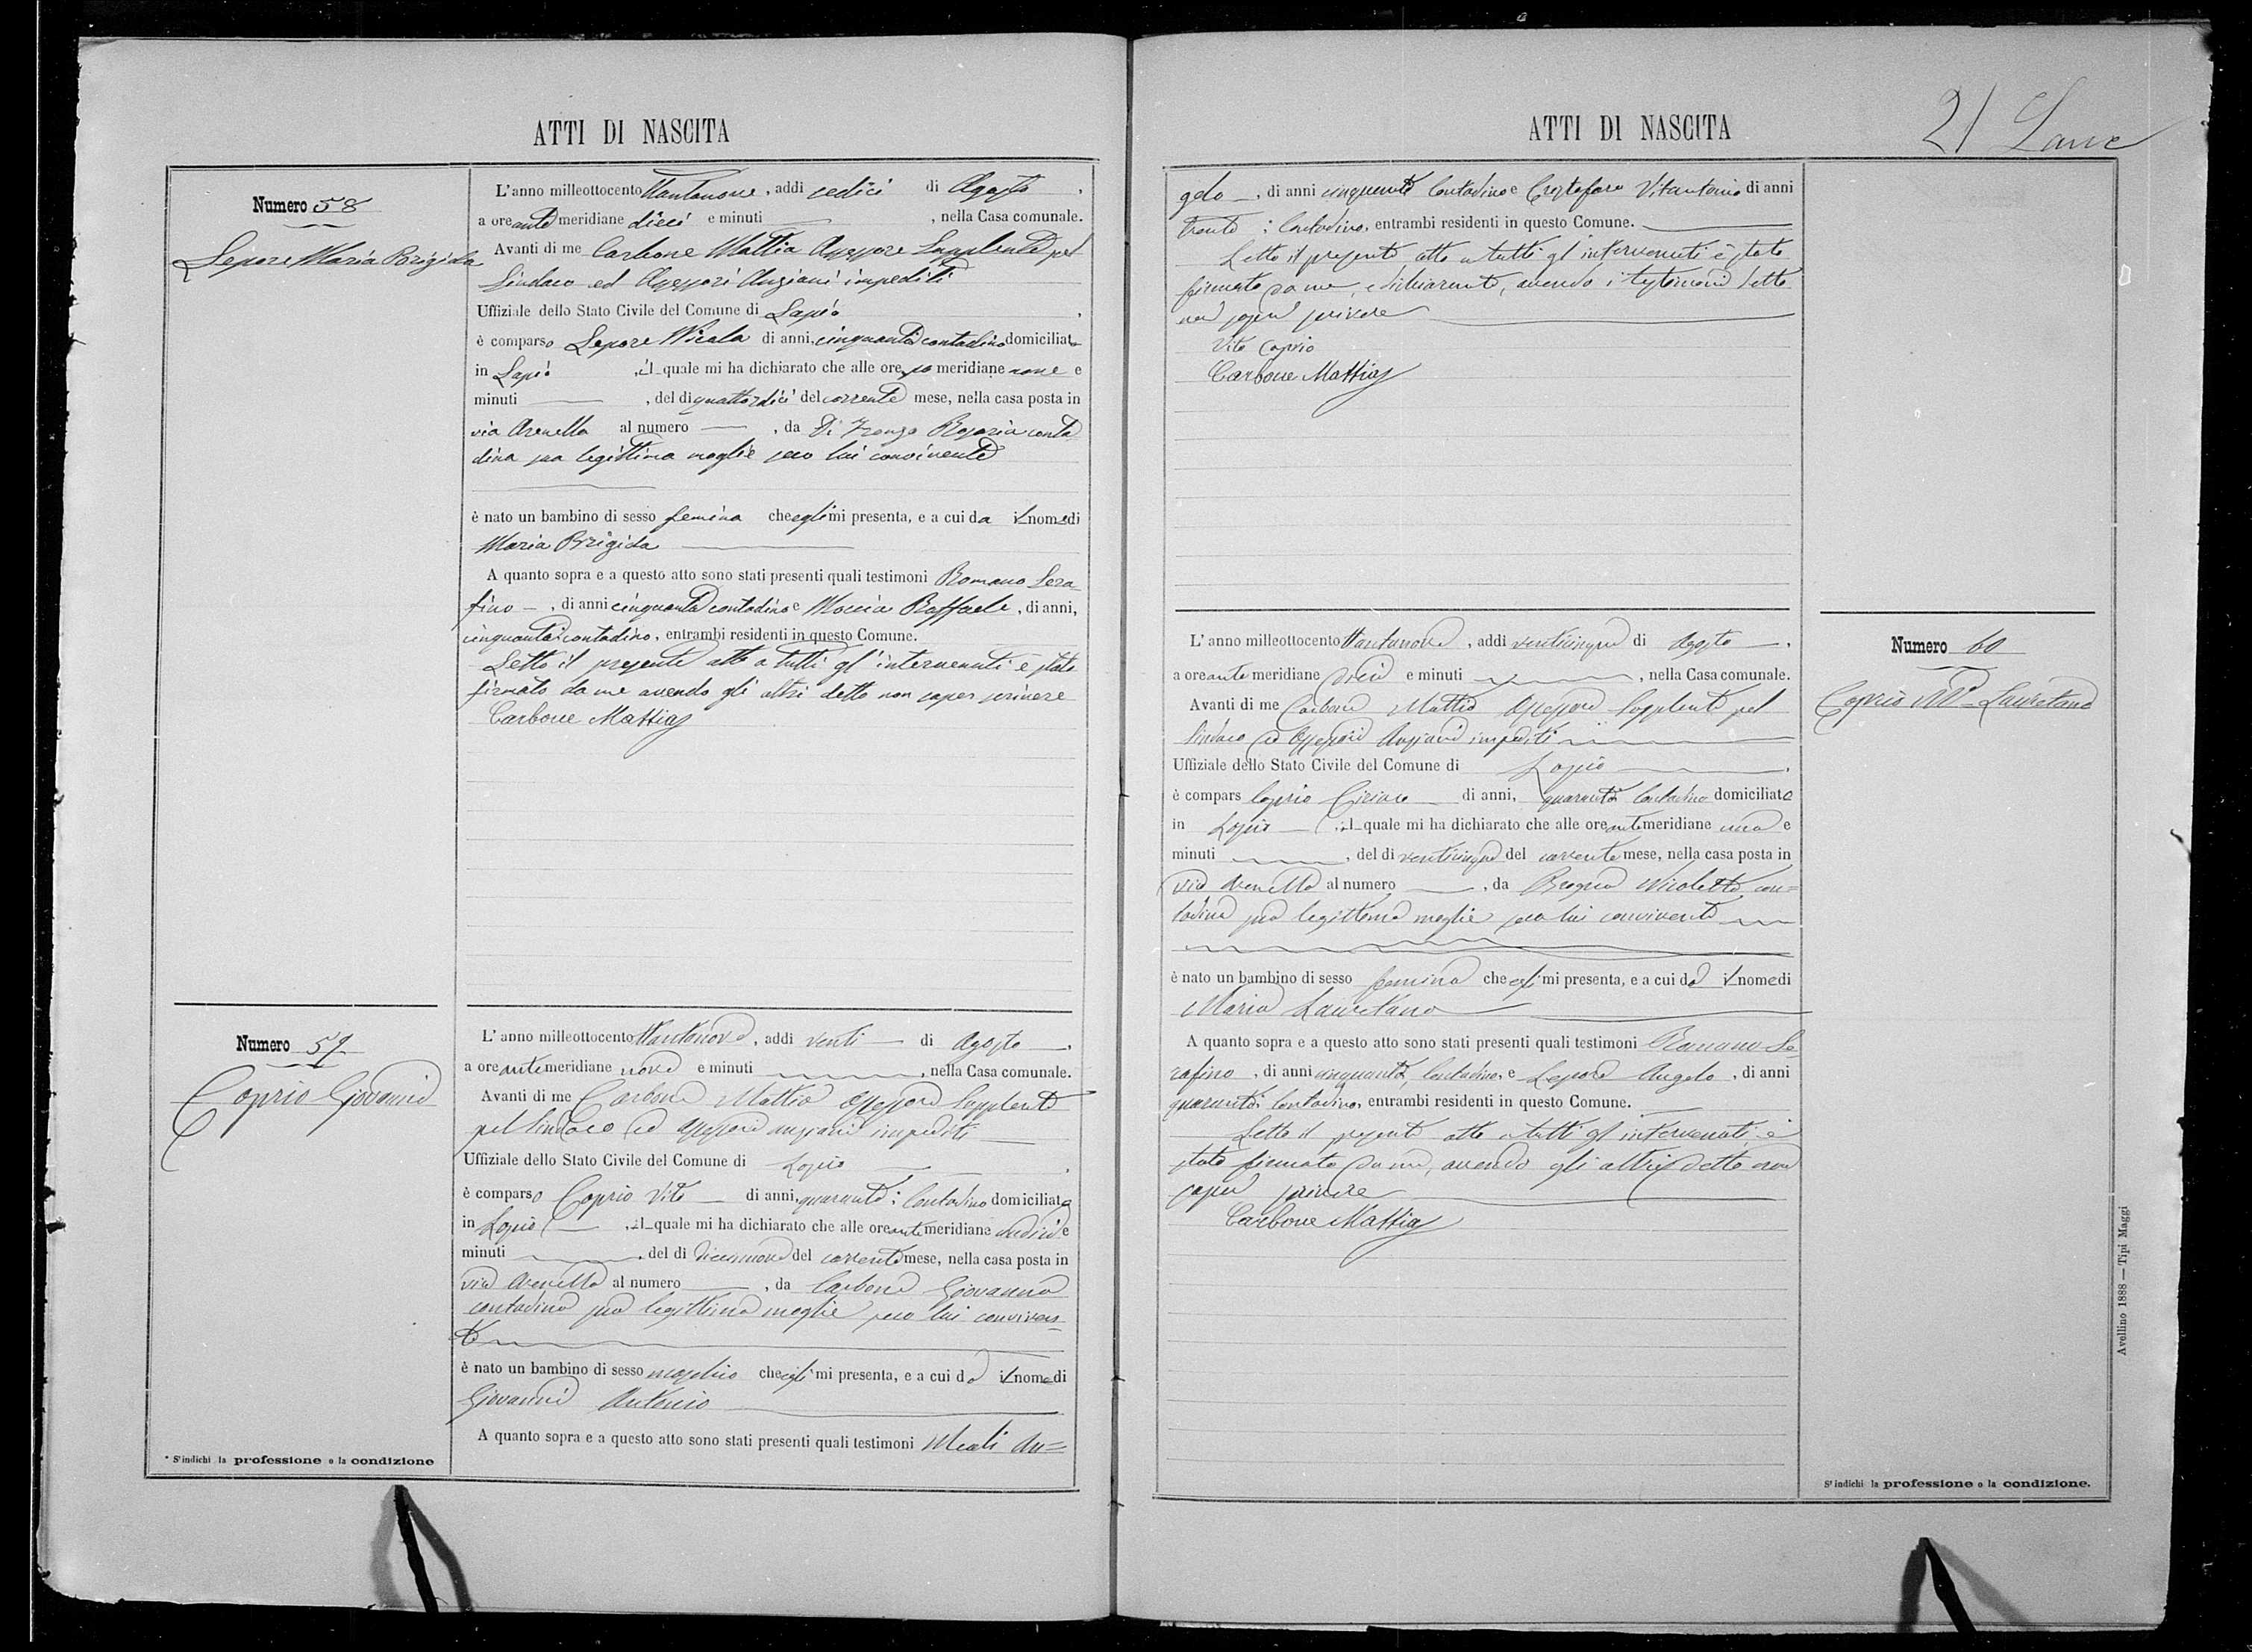 ATTI DI NASCITA
Numero 58
Lepore Maria Brigida
L'anno milleottocento ttantanove, addi sedici di Agosto,
a ore ante meridiane dieci e minuti , nella Casa comunale.
Avanti di me Carbone Mattia Assessore Supplente pel
Sindaco ed Assessori Anziani impediti
Uffiziale dello Stato Civile del Comune di Lapio
è comparso Lepore Nicola di anni, cinquanta contadino domiciliato
in Lapio , il quale mi ha dichiarato che alle ore po meridiane nove e
minuti , del di quattordici del corrente mese, nella casa posta in
via Arenella al numero , da Di Ienzo Rosaria conta
dina sua legittima moglie seco lui convivente
è nato un bambino di sesso femina che egli mi presenta, e a cui da il nome di
Maria Brigida
A quanto sopra e a questo atto sono stati presenti quali testimoni Romano Sera
fino , di anni cinquanta contadino e Moccia Raffaele, di anni,
cinquanta contadino, entrambi residenti in questo Comune.
Letto il presente atto a tutti gl'intervenuti è stato
firmato da me avendo gli altri detto non saper scrivere
Carbone Mattia
Numero 59
Caprio Giovanni
L'anno milleottocento ttantanove, addi venti di Agosto,
a ore ante meridiane nove e minuti , nella Casa comunale.
Avanti di me Carbone Mattia Assessore Supplente
pel Sindaco ed Assessori anziani impediti
Uffiziale dello Stato Civile del Comune di Lapio
è comparso Caprio Vito di anni, quaranta: Contadino domiciliato
in Lapio , il quale mi ha dichiarato che alle ore ante meridiane undici e
minuti , del di diecinnove del corrente mese, nella casa posta in
via Arenella al numero , da Carbone Giovanna
contadina sua legittima moglie seco lui conviven
te
è nato un bambino di sesso maschio che egli mi presenta, e a cui da il nome di
Giovanni Antonio
A quanto sopra e a questo atto sono stati presenti quali testimoni Meoli An=
* S'indichi la professione o la condizione
ATTI DI NASCITA
21
gelo , di anni cinquanta Contadino e Crostofaro Vitantonio di anni
trenta : Contadino, entrambi residenti in questo Comune.
Letto il presente atto a tutti gl'intervenuti è stato
firmato da me, e dichiarante, avendo i testimoni detto
non saper scrivere
Vito Caprio
Carbone Mattia
Numero 60
Caprio Ma Lauretana
L'anno milleottocento ttantanove, addi venticinque di Agosto ,
a ore ante meridiane dieci e minuti , nella Casa comunale.
Avanti di me Carbone Mattia Assessore Supplente pel
Sindaco ed Assessori Anziani impediti
Uffiziale dello Stato Civile del Comune di Lapio .
è compars Caprio Ciriaco di anni, quaranta Contadino domiciliato
in Lapio , il quale mi ha dichiarato che alle ore ante meridiane una e
minuti , del di venticinque del corrente mese, nella casa posta in
via Arenella al numero , da Nicoletta con=
tadina sua legittima moglie seco lui convivente
è nato un bambino di sesso femina che egli mi presenta, e a cui da il nome di
Maria Lauretana
A quanto sopra e a questo atto sono stati presenti quali testimoni Romano Se
rafino , di anni cinquanta, Contadino, e Lepore Angelo , di anni
quaranta: Contadino, entrambi residenti in questo Comune.
Letto il presente atto a tutti gl'intervenuti è
stato firmato da me, avendo gli altri detto non
saper scrivere
Carbone Mattia
Avellino 1888 — Tipi Maggi
S'indichi la professione o la condizione.